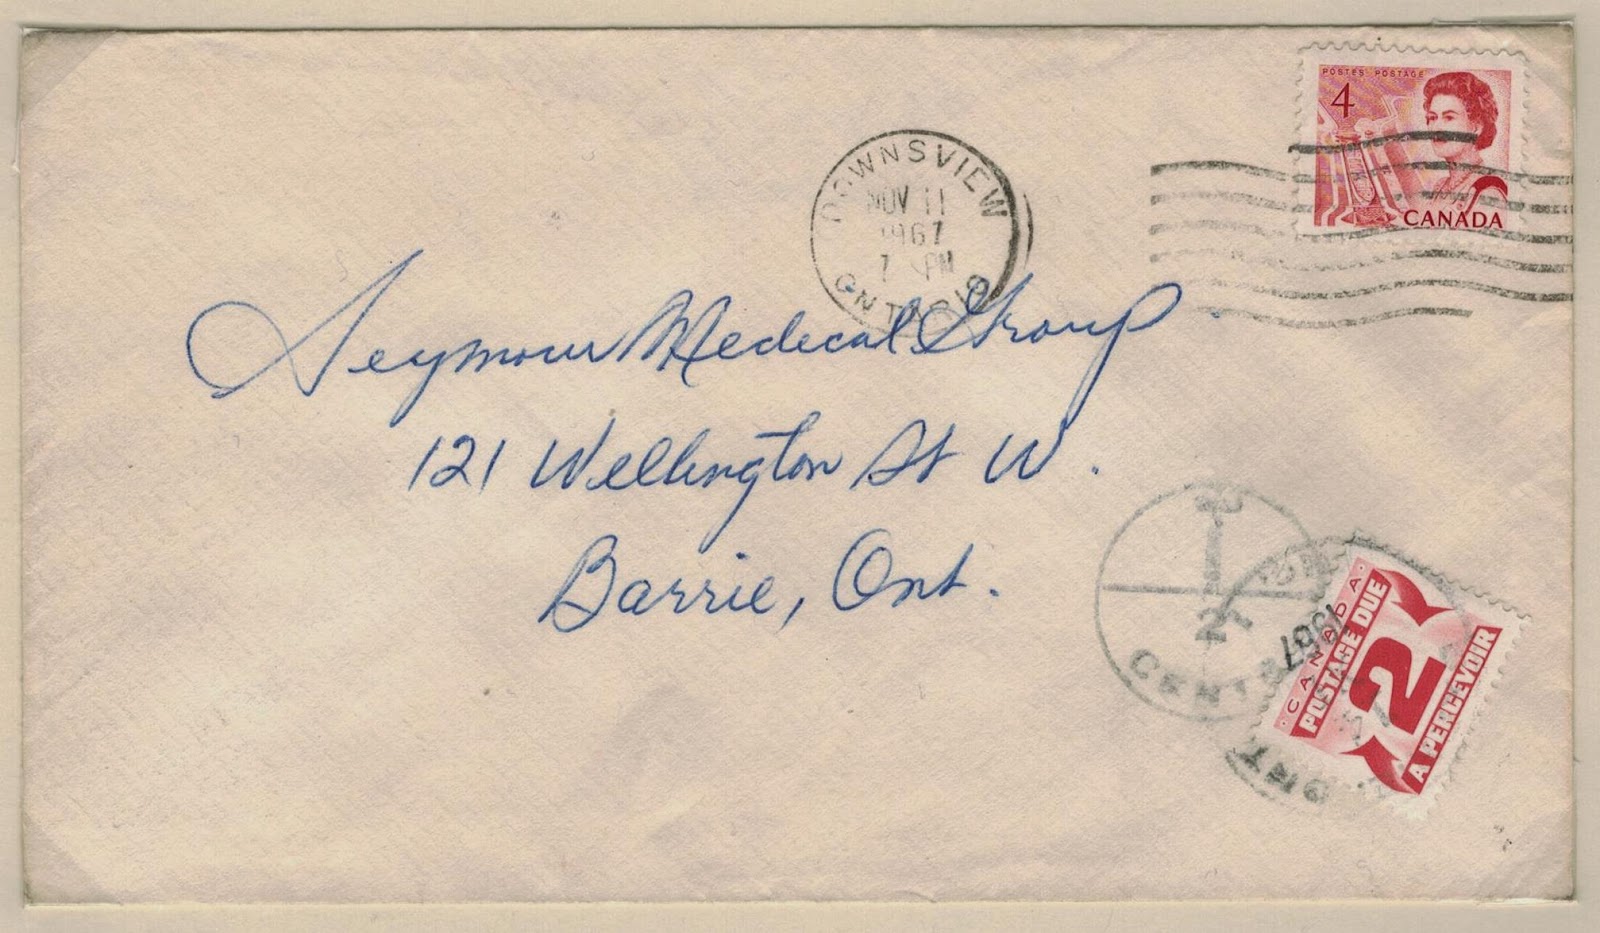 POSTES POSTAGE
4
CANADA
DOWNSVIEW
NOV 11
1967
7 PM
ONTARIO
Seymour Medical Group
121 Wellington St W.
Barrie, Ont.
T
2
CENT
1967
ONT
CANADA
POSTAGE DUE
2
A PERCEVOIR